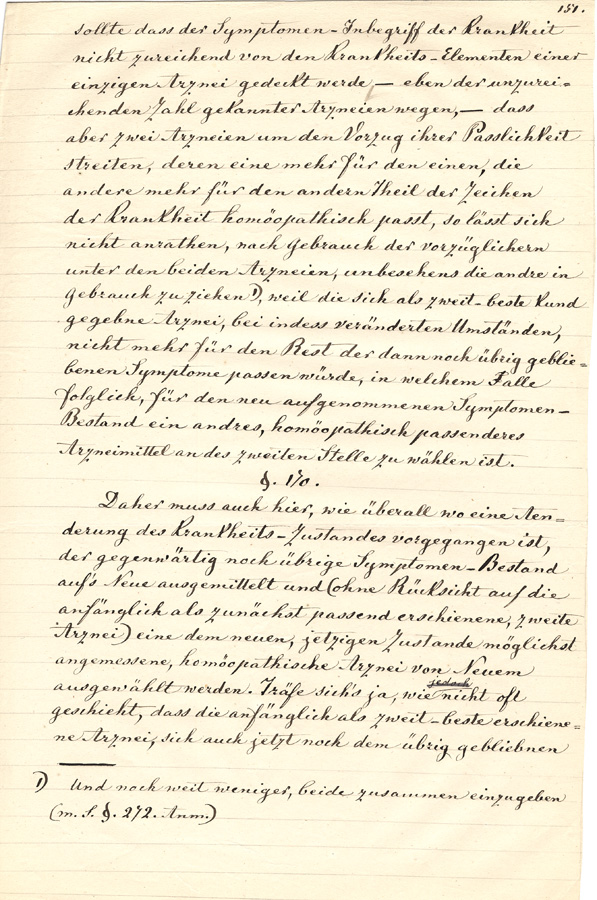 151.
sollte dass der Symptomen-Inbegriff der Krankheit
nicht zureichend von den Krankheits-Elementen einer
einzigen Arznei gedeckt werde — eben der unzurei=
chenden Zahl gekannter Arzneien wegen, — dass
aber zwei Arzneien um den Vorzug ihrer Passlichkeit
streiten, deren eine mehr für den einen, die
andere mehr für den andern Theil der Zeichen
der Krankheit homöopathisch passt, so lässt sich
nicht anrathen, nach Gebrauch der vorzüglichern
unter den beiden Arzneien, unbesehens die andre in
Gebrauch zu ziehen 1), weil die sich als zweit-beste kund
gegebne Arznei, bei indess veränderten Umständen,
nicht mehr für den Rest der dann noch übrig geblie=
benen Symptome passen würde, in welchem Falle
folglich, für den neu aufgenommenen Symptomen-
Bestand ein andres, homöopathisch passenderes
Arzneimittel an des zweiten Stelle zu wählen ist.
§. 170.
Daher muss auch hier, wie überall wo eine Aen=
derung des Krankheits-Zustandes vorgegangen ist,
der gegenwärtig noch übrige Symptomen-Bestand
aufs Neue ausgemittelt und (ohne Rücksicht auf die
anfänglich als zunächst passend erschienene, zweite
Arznei) eine dem neuen, jetzigen Zustande möglichst
angemessene, homöopathische Arznei von Neuem
jedoch
ausgewählt werden. Träfe sich's ja, wie nicht oft
geschieht, dass die anfänglich als zweit-beste erschiene=
ne Arznei, sich auch jetzt noch dem übrig gebliebnen
1) Und noch weit weniger, beide zusammen einzugeben
(m. s. §. 272. Anm.)